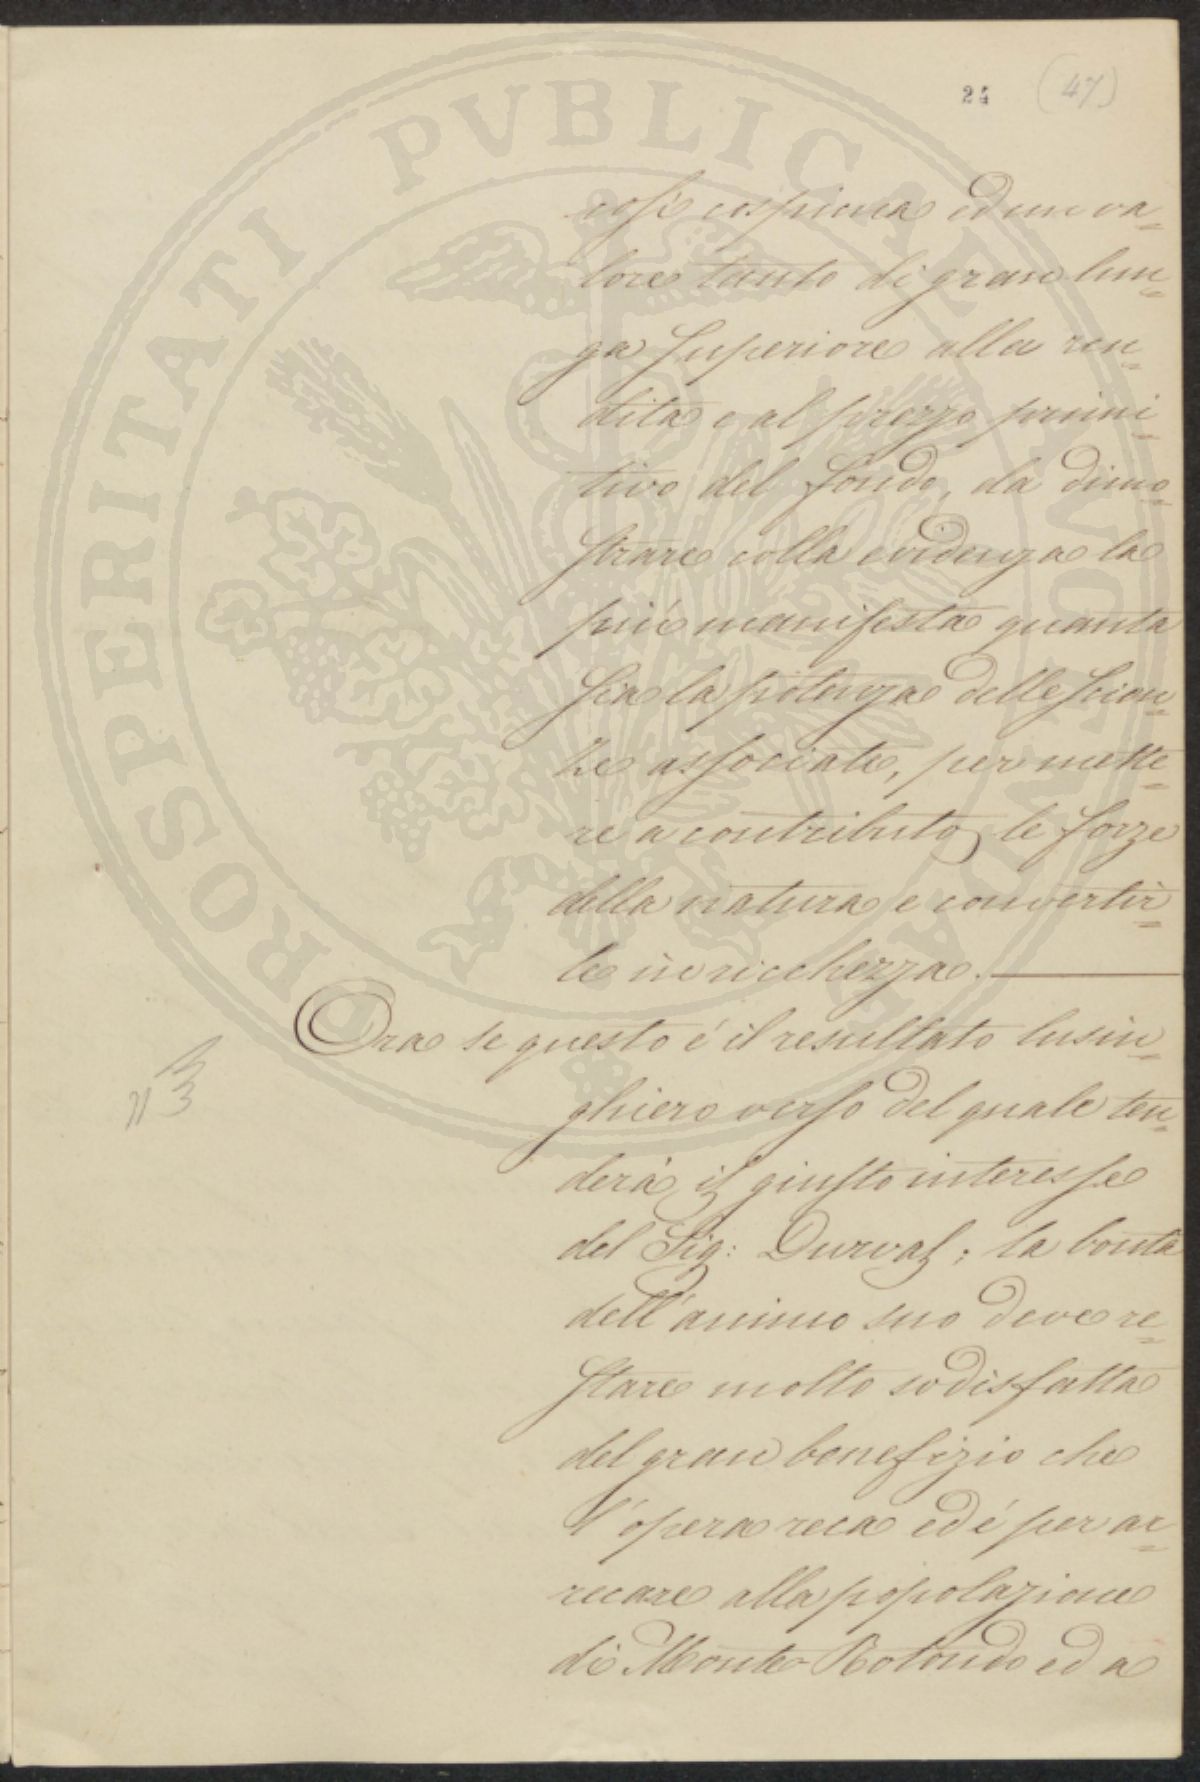 24 (47)
così cospicua ed un va=
lore tanto di gran lun=
ga superiore alla ren=
dita e al prezzo primi=
tivo del fondo, da dimo=
strare colla evidenza la
più manifesta quanta
sia la potenza delle scien=
ze associate, per mette=
re a contributo le forze
della natura e convertir=
le in ricchezza.
Ora se questo é il resultato lusin=
ghiero verso del quale ten=
derà il giusto interesse
del Sig: Durval; la bontà
dell'animo suo deve re=
stare molto sodisfatta
del gran benefizio che
l'opera reca ed é per ar=
recare alla popolazione
di Monte-Rotondo ed a
PROSPERITATI PVBLICAE AVGENDAE